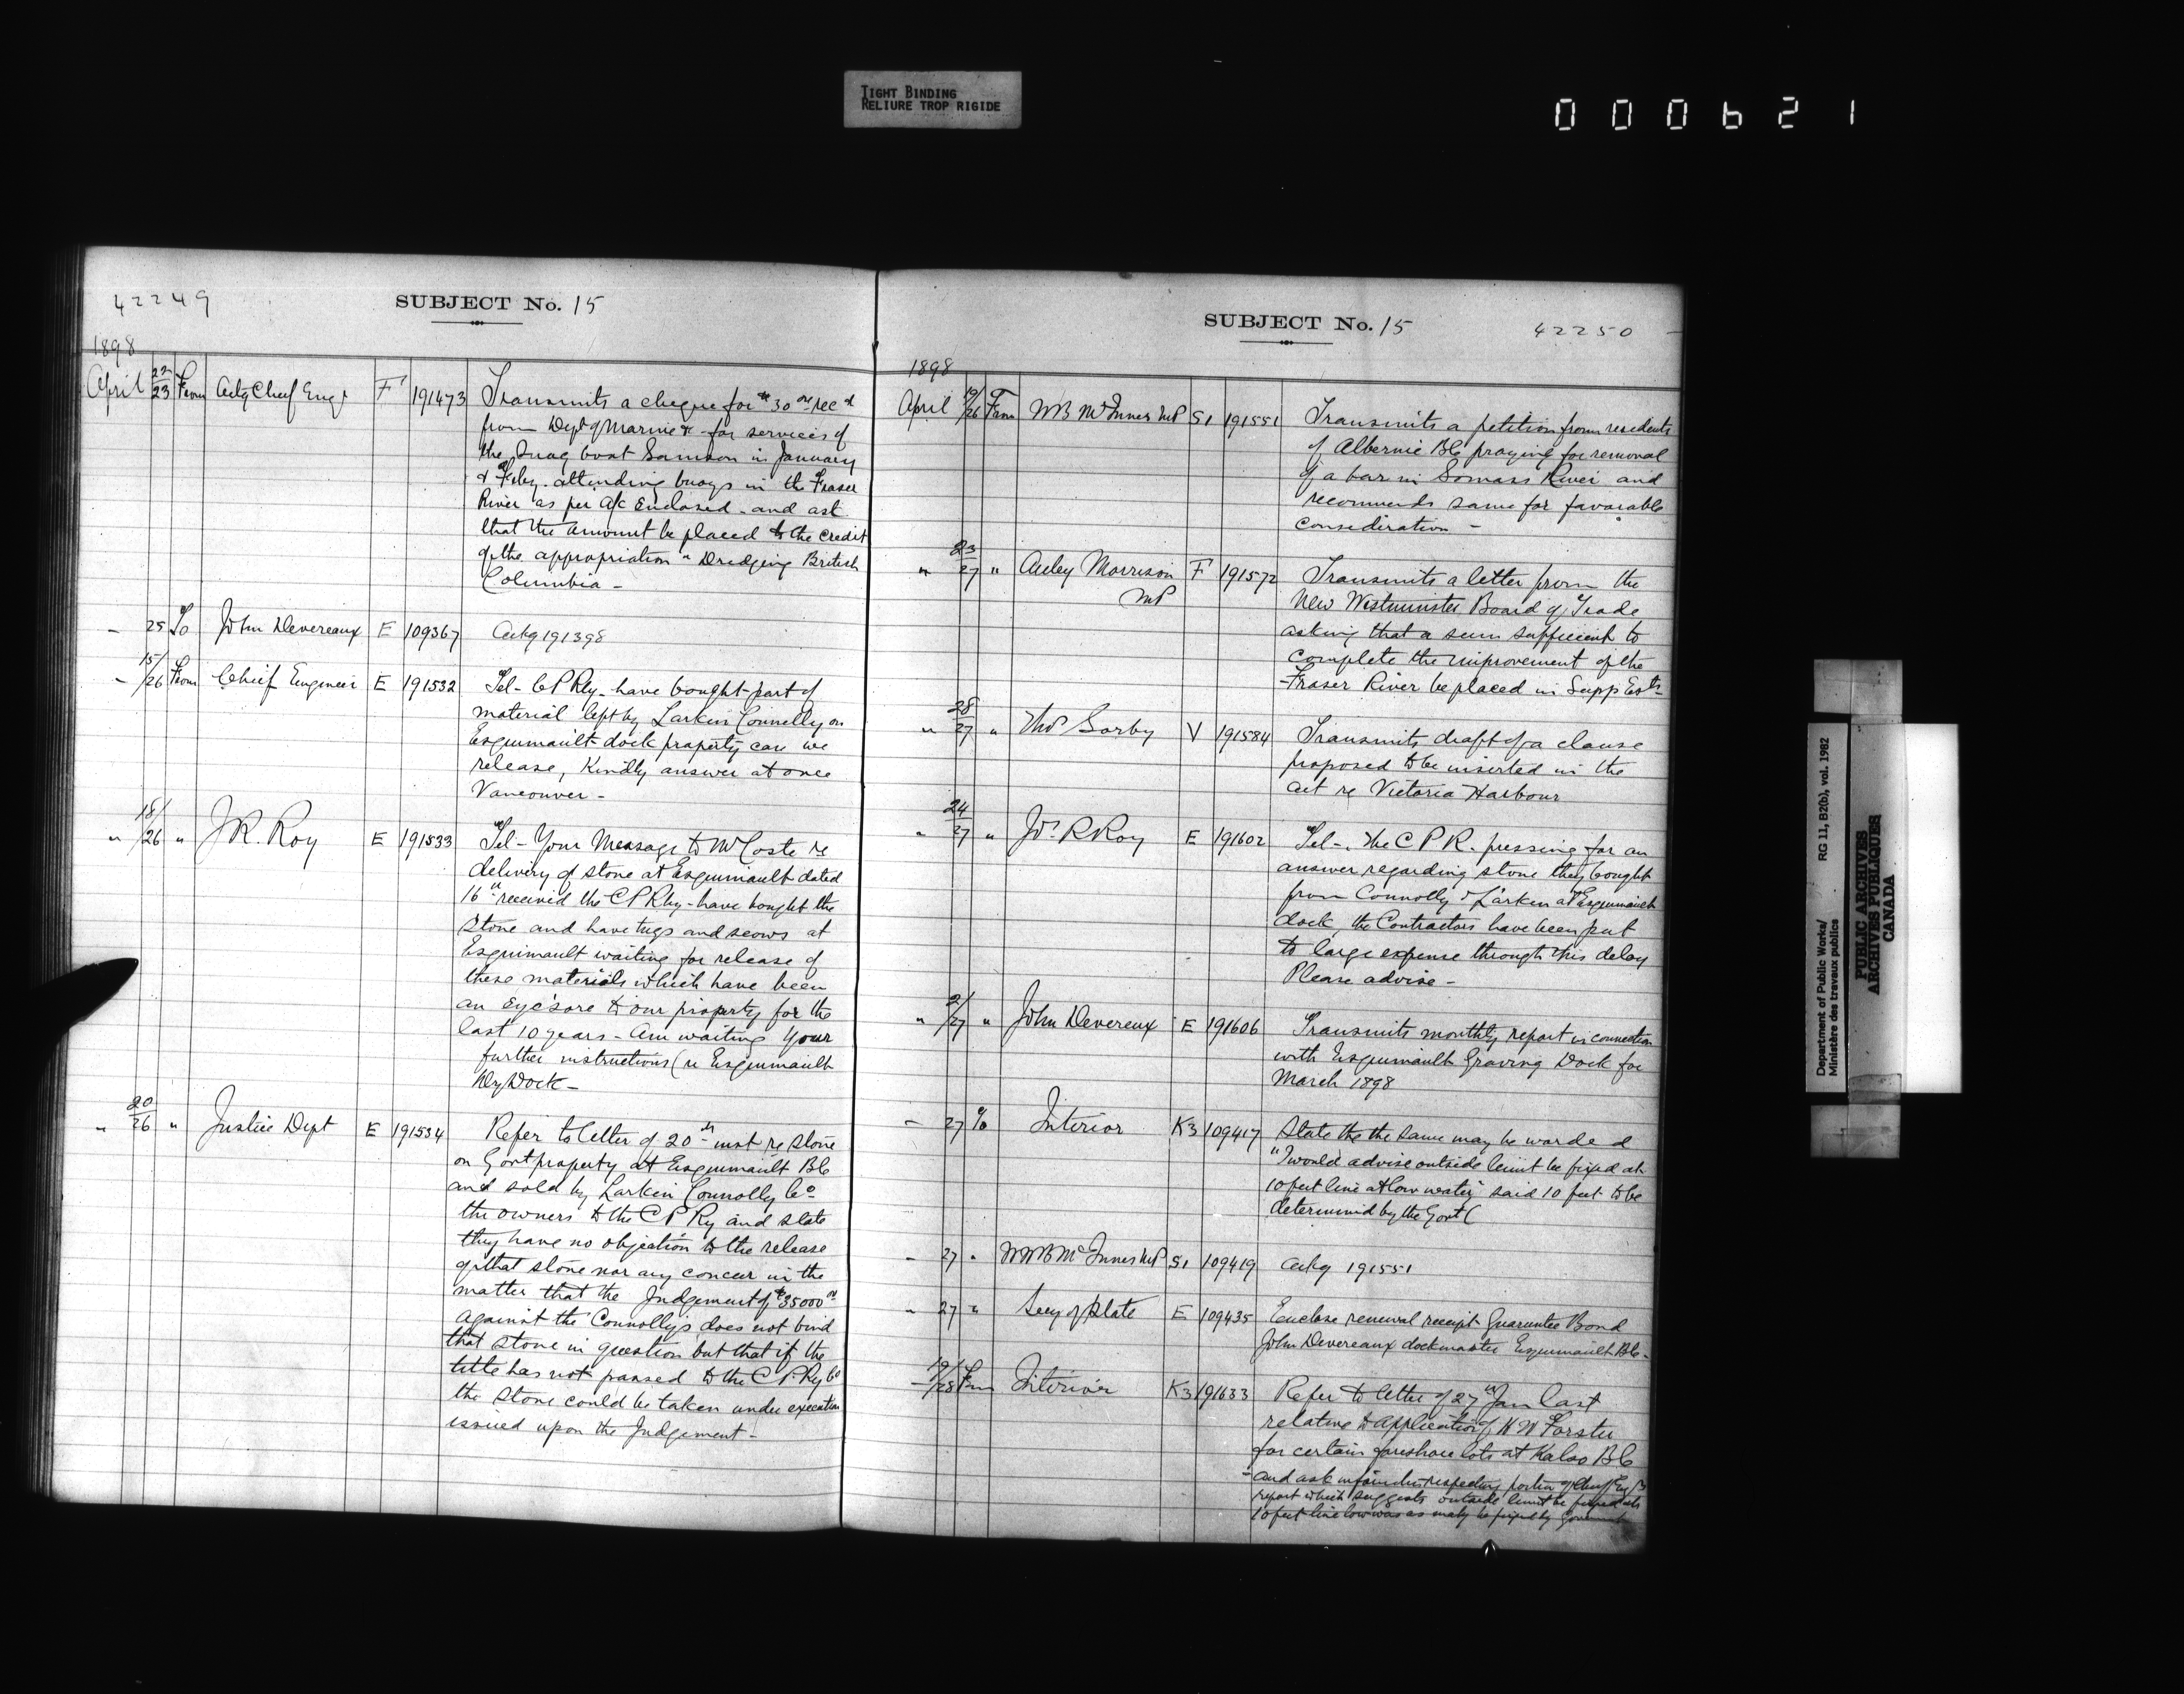 TIGHT BINDING
RELIURE TROP RIGIDE
000621
42249
SUBJECT No. 15
1898
April 22/23 From Actg Chief Engr F 191473 Transmits a cheque for $30 00 recd
from Dept of Marine & for services of
the Snag boat Samson in January
& Feby. attending buoys in the Fraser
River as per a/c Enclosed - and ask
that the amount be placed to the credit
of the appropriation "Dredging British
Columbia -
25 To John Devereaux E 109367 Ackg 191398
15/26 From Chief Engineer E 191532 Tel - C P Rly - have bought part of
material left by Larkin Connolly on
Esquimault dock property can we
release, Kindly answer at once
Vancouver -
" 18/26 " J R. Roy E 191533 Tel - Your Message to Mr Coste re
delivery of stone at Esquimault dated
16th received the C P Rly - have bought the
Stone and have tugs and scows at
Esquimault waiting for release of
these materials which have been
an Eye'sore to our property for the
last 10 years - Am waiting your
further instructions (re Esquimault
Dry Dock -
" 20/26 " Justice Dept E 191534 Refer to letter of 20th inst re stone
on Govt property at Esquimault BC
and sold by Larkin Connolly Co
the owners to the C P Ry and state
they have no objection to the release
of that stone nor any concern in the
matter that the Judgement of $35000 00
against the Connolly's does not bind
that stone in question but that if the
title has not passed to the C P Ry Co
the stone could be taken under execution
issued upon the Judgement -
SUBJECT No. 15
42250
1898
April 19/26 From WB McInnes MP S1 191551 Transmits a petition from residents
of Albernie BC praying for removal
of a bar in Somass River and
recommends same for favorable
consideration -
" 23/27 " Auley Morrison F 191572 Transmits a letter from the
MP New Westminster Board of Trade
asking that a sum sufficient to
complete the improvement of the
Fraser River be placed in Supp Ests -
" 28/27 " Thos Sorby V 191584 Transmits draft of a clause
proposed to be inserted in the
act re Victoria Harbour
" 24/27 " Jos R Roy E 191602 Tel - The C P R. pressing for an
answer regarding stone they bought
from Connolly & Larken at Esquimault
dock, the Contractors have been put
to large expense through this delay
Please advise -
" 21/27 " John Devereux E 191606 Transmits monthly report in connection
with Esquimault Graving Dock for
March 1898
- 27 To Interior K3 109417 State the the same may be worded
"I would advise outside limit be fixed at
10 feet line at low water" said 10 feet to be
determined by the Govt (
- 27 " WWB McInnes MP S1 109419 Ackg 191551
" 27 " Secy of State E 109435 Enclose renewal receipt Guarantee Bond
John Devereaux dockmaster Esquimault BC -
19/28 From Interior K3 191633 Refer to letter of 27th Jan last
relative to application of H W Forster
for certain foreshore lots at Kalso BC
- and ask respecting portion of Chief Eng's
report which suggests outside limit be fixed at
10 feet line low was as may be fixed by Government
Department of Public Works/
Ministère des travaux publics
RG 11, B2(b), vol. 1982
PUBLIC ARCHIVES
ARCHIVES PUBLIQUES
CANADA